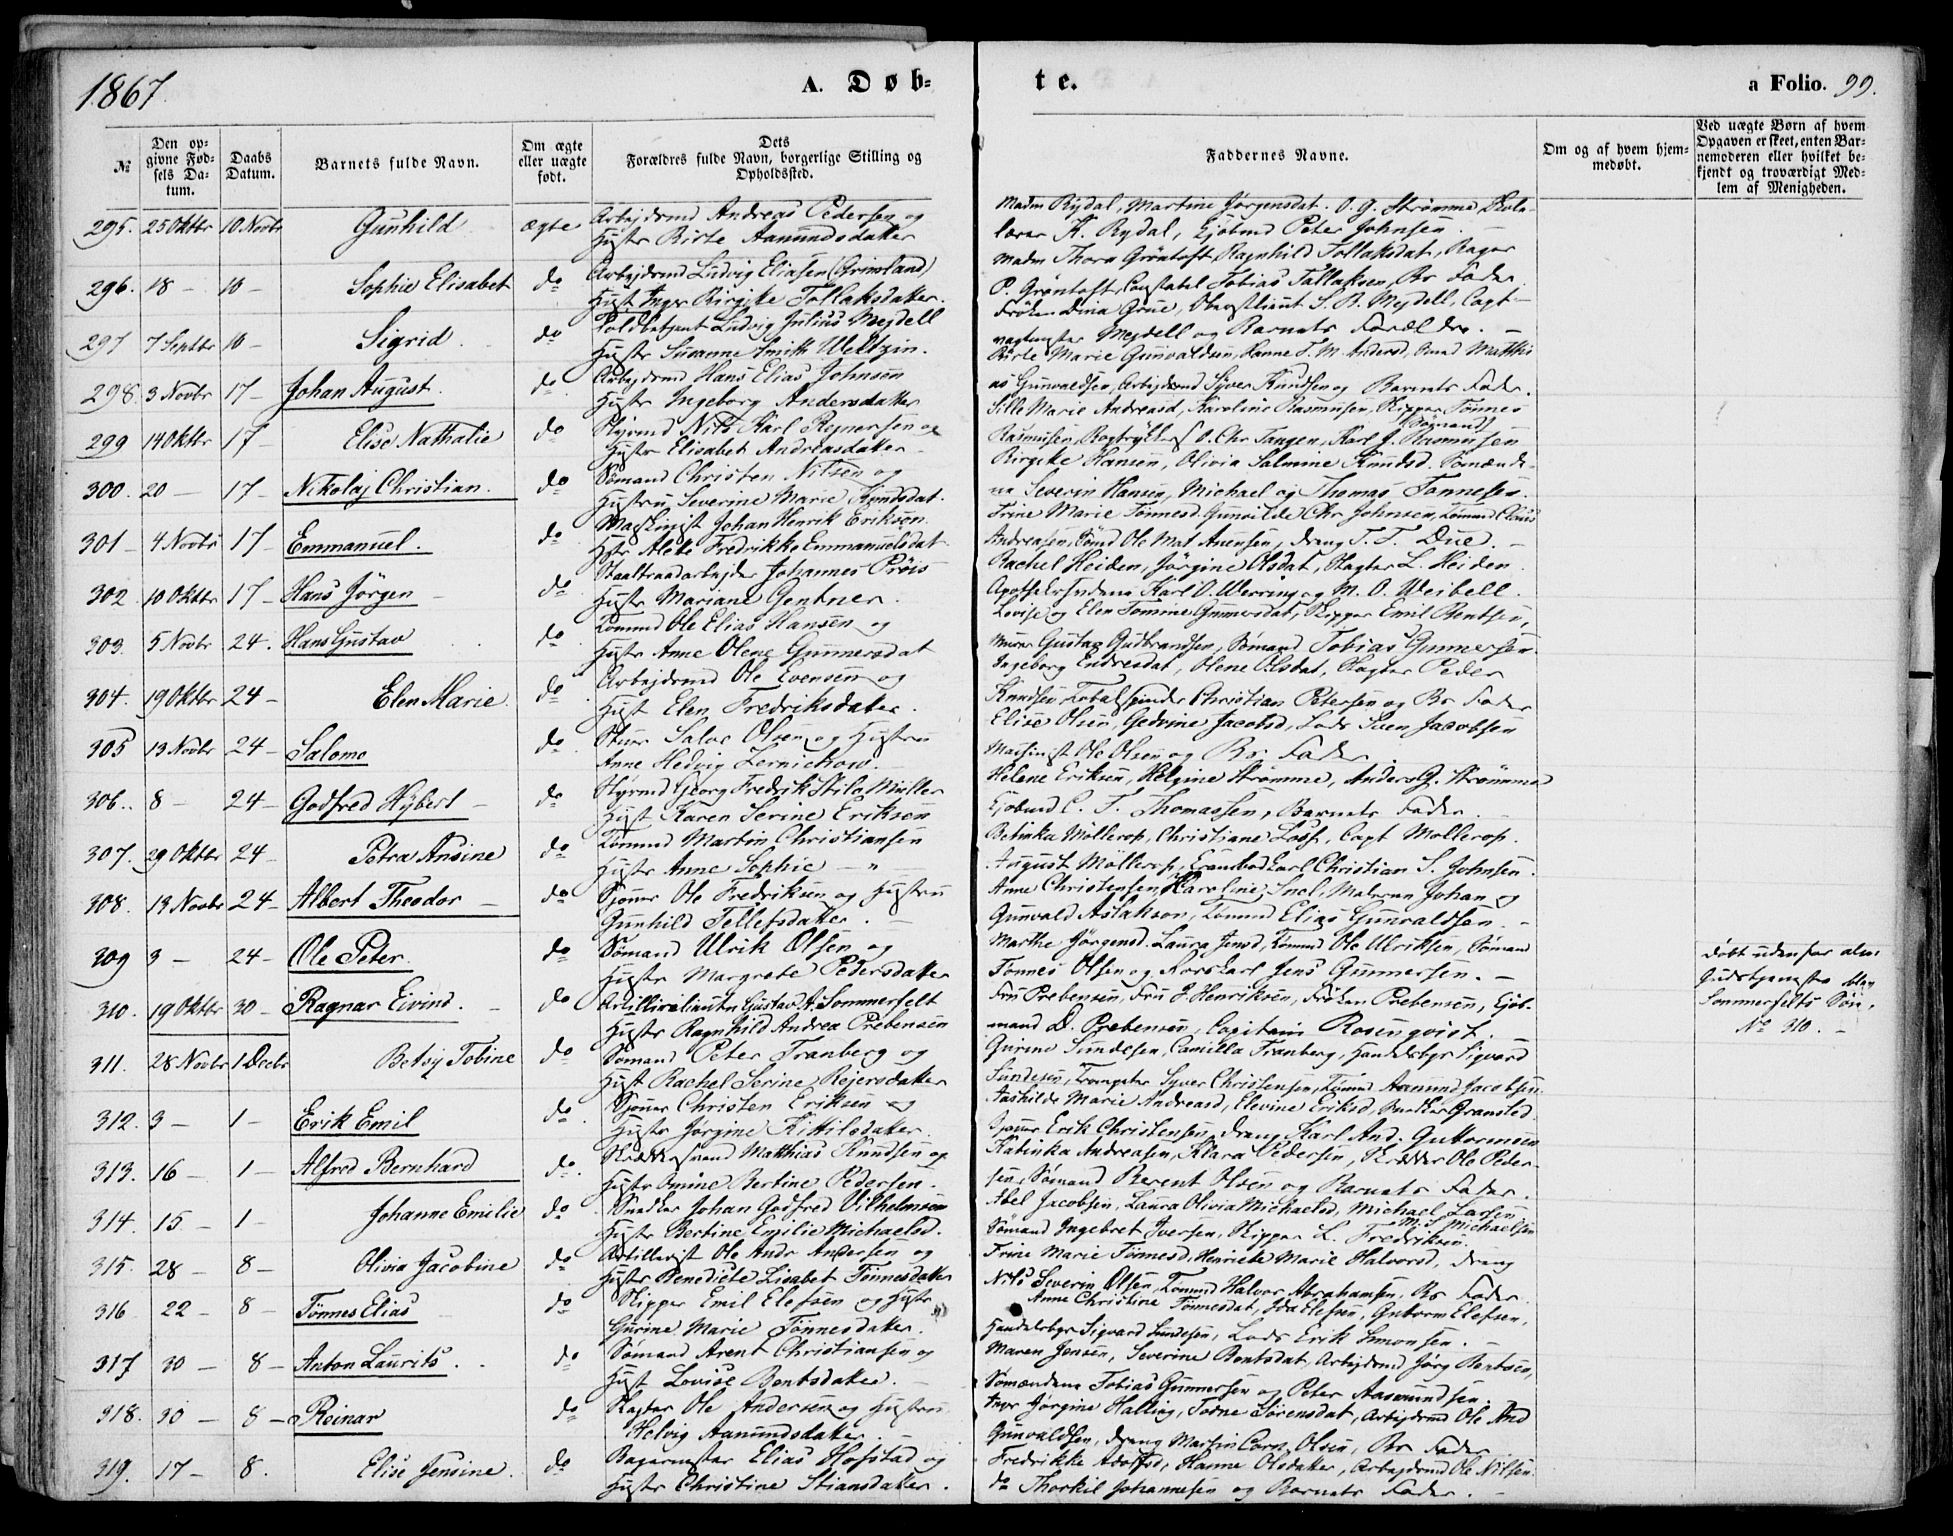 1867.
A. Døb-
te.
a Folio. 99.
№
Den op-
givne Fød-
sels Da-
tum.
Daabs
Datum.
Barnets fulde Navn.
Om ægte
eller uægte
født.
Dets
Forældres fulde Navn, borgerlige Stilling og
Opholdssted.
Faddernes Navne.
Om og af hvem hjem-
medøbt.
Ved uægte Børn af hvem
Opgaven er skeet, enten Bar-
nemoderen eller hvilket be-
kjendt og troværdigt Med-
lem af Menigheden.
295. 25 Oktbr 10 Novbr Gunhild ægte Arbejdsmd Andreas Pedersen og
Hustr Birte Aanundsdatter
Madm Rydal, Martine Jørgensdat. O. G. Strømme, Skole-
lærer K. Rydal, Gjøbmd Peter Johnsen. –
296. 18 – 10 – Sophie Elisabet do Arbejdsmd Ludvig Eliasen (Grimland)
Hust Inger Birgitte Tollaksdatter.
Madm Thora Grøntoft, Ragnhild Tollaksdat, Bager
P. Grøntoft, Constabel Tobias Tallaksen, Bs Fader
297 7 Septbr 10 – Sigrid do Toldbetjent Ludvig Julius Mejdell
Hustr Susanne Smith Weltzin.
Frøken Dina Grue, Oberstlieut S. B. Mejdell, Capt-
Mejdell og Barnets Forældre. –
298. 3 Novbr 17 – Johan August. do Arbejdsmd Hans Elias Johnsen
Hustr Ingeborg Andersdatter
Birte Marie Gunvaldsen, Hanne T. M. Andersd, Matthi
as Gunvaldsen, Arbejdsmd Syver Knudsen og Barnets Fader.
299 14 Oktbr 17 – Elise Nathalie do Styrmd Nils Karl Rejnersen og
Hustr Elisabet Andreasdatter
Sille Marie Andreasd, Karoline Rasmusen, Skipper Tønnes
(Sømand)
Rasmusen, Bogtrykker O. Chr Tangen, Karl J. Rasmussen
300. 20 – 17 – Nikolaj Christian. do Sømand Christen Nilsen og
Hustru Severine Marie Knudsdat.
Birgitte Hansen, Olivia Salmine Knudsd. Sømænde-
ne Severin Hansen, Michael og Thomas Tønnesen.
301 – 4 Novbr 17 – Emmanuel. do Maskinist Johan Henrik Eriksen
Hstr Alette Fredrikke Emmanuelsdat.
Trine Marie Tønnesd. Gunvilde Chr Johnsen, Tømmd Claus
Andreasen, Sømd Ole Mat Anensen, Dreng T. T. Due. –
302 10 Oktbr 17 – Hans Jørgen do Staaltraadarbejder Johannes Prøis
Hustr Mariane Gentner.
Rachel Heiden, Jørgine Olsdat, Slagter L. Heiden.
Karl O. Werring og M. O. Weibell.
303. 5 Novbr 24. Hans Gustav do Tømmd Ole Elias Hansen og
Hustr Anne Olene Gunnersdat
Lovise og Elen Tomine Gunnersdat, Skipper Emil Bentsen,
Murer Gustav Gudbrandsen, Sømand Tobias Gunnersen.
304. 19 Oktbr 24 – Elen Marie. do Arbejdsmd Ole Evensen og
Hust Elen Fredriksdatter.
Ingeborg Endresdat, Olene Olsdat, Slagter Peder
Knudsen, Tobakspinder Christian Petersen og Bs Fader
305 13 Novbr 24 – Salomo do Salve Olsen og Hustru
Anne Hedvig Zernichow.
Elise Olsen, Gedvine Jacobsd, Lods Sven Jacobsen
Maskinist Ole Olsen og Bs Fader.
306. 8 – 24 – Godfred Hybert – do Styrmd Georg Fredrik Stilo Müller
Hust Karen Serine Eriksen
Helene Eriksen, Helgine Strømme, Anders G. Strømme
Gjøbmd C. T. Thomassen, Barnets Fader.
307. 29 Oktbr 24 – Petra Ansine do Tømmd Martin Christiansen
Hustr Anne Sophie – " –
Betinka Mollerop, Christiane Loss, Capt Mollerop.
August Möllerop, Karl Christian S. Johnsen.
308. 13 Novbr 24 – Albert Theodor – do Sjouer Ole Fredriksen og Hustru
Gunhild Tellefsdatter. –
Anne Christensen, Karoline Snel, Malerne Johan og
Gunvald Aslakson, Tømmd Elias Gunvaldsen. –
309 3 – 24 – Ole Peter. do Sømand Ulrik Olsen og
Hustr Margrete Pedersdatter
Marthe Jørgensd. Laura Jensd, Tømmd Ole Ulriksen, Sømand
Tønnes Olsen og Jens Gunnersen. –
310. 19 Oktbr 30 – Ragnar Eivind. – do Artillerilieutn Gustav A. Sommerfelt
Hustr Ragnhild Andrea Prebensen
Fru Prebensen, Fru J. Henriksen, Frøken Prebensen, Gjøb-
mand D. Prebensen, Capitain Rosenqvist. –
Døbt udenfor alm:
Gudstjeneste blev
Sommerfelts Søn,
No 310. –
311. 28 Novbr 1 Decbr Betsy Tobine do Sømand Peter Tranberg og
Hust Rachel Serine Rejersdatter
Gurine Sundesen, Camilla Tranberg, Handelsbgr Sigvard
Sundesen, Trompeter Syver Christensen, Tømmd Aanund Jacobsen.
312. 3 – 1 – Erik Emil do Sjouer Christen Eriksen og
Hustr Jørgine Kittilsdatter.
Aashilde Marie Andreasd, Elevine Eriksd, Snedker Gransted
Sjouer Erik Christensen, Dreng Karl And. Guttormsen
313. 16 – 1 – Alfred Bernhard do Matthias Knudsen og
Hustr Omine Bertine Pedersen.
Katinka Andreasen, Klara Pedersen, Skrædder Ole Peder-
sen, Sømand Berent Olsen og Barnets Fader.
314. 15 – 1 – Johanne Emilie do Snedker Johan Godfred Vilhelmsen
Hustr Bertine Emilie Michaelsd.
Abel Jacobsen, Laura Olivia Michaelsd, Michael Larsen
M. S. Michaelsen
Sømand Ingebret Iversen, Skipper L. Fredriksen.
315. 28 – 8 – Olivia Jacobine do Artillerist Ole Andr Andersen og
Hustr Benedicte Lisabet Tønnesdatter
Trine Marie Tønnesd, Henriette Marie Halvorsd, Dreng
Nils Severin Olsen, Tømmd Halvor Abrahamsen, Bs Fader.
316 22 – 8 – Tønnes Elias do Skipper Emil Elefsen og Hustr
Gurine Marie Tønnesdatter.
Anne Christine Tønnesdat, Ida Elefsen, Gutorm Elefsen,
Handelsbgr Sigvard Sundesen, Lods Erik Simonsen. –
317 30 – 8 – Anton Laurits. do Sømand Arent Christiansen og
Hust Lovise Bentsdatter. –
Maren Jensen, Severine Bentsdat, Arbejdsmd Jørg Bentsen,
Sømændene Tobias Gunnersen og Peter Aasmundsen.
318. 30 – 8 – Reinar do Slagter Ole Andersen og Hustru
Helvig Aanundsdatter. –
Inger Jørgine Halling, Tarne Sørensdat, Arbejdsmd Ole And
Gunvaldsen, Dreng Martin Carn Olsen, Bs Fader
319. 17 – 8. Elise Jensine. do Bagermester Elias Hofstad og
Hustr Christine Stiansdatter.
Fredrikke Adolfsd, Hanne Olsdatter, Arbejdsmd Ole Nilsen
do Thorkil Johannesen og Barnets Fader. –